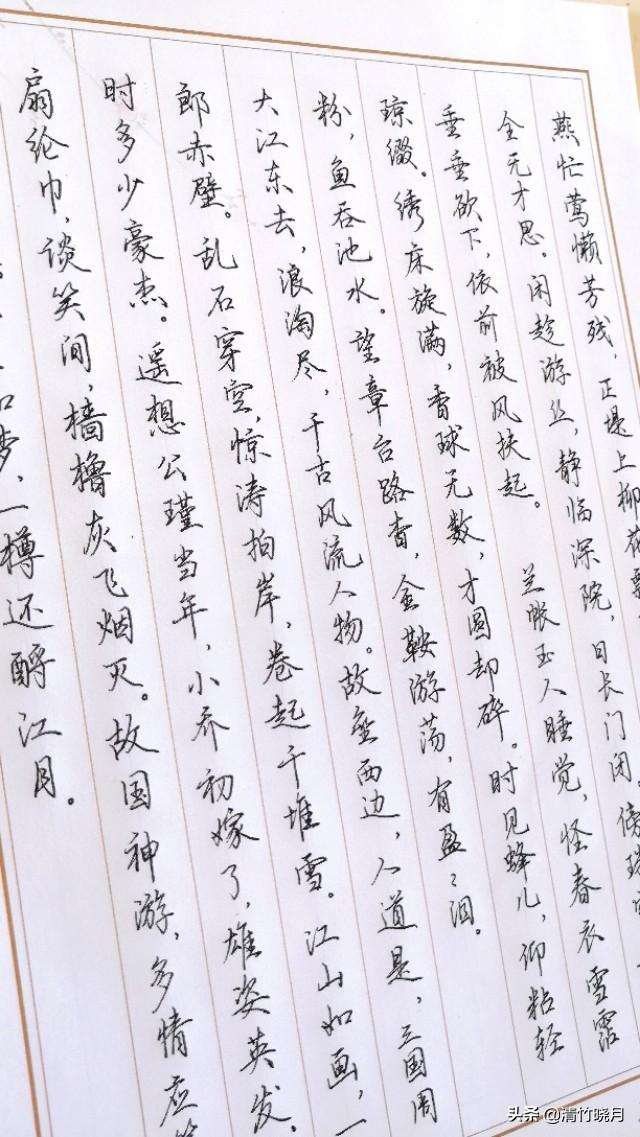 燕忙莺懒芳残，正堤上柳花飘
全无才思。闲趁游丝，静临深院，日长门闭，傍珠
垂垂欲下，依前被风扶起。 兰帐玉人睡觉，怪春衣雪霑
琼缀。绣床旋满，香球无数，才圆却碎。时见蜂儿，仰粘轻
粉，鱼吞池水。望章台路杳，金鞍游荡，有盈〻泪。
大江东去，浪淘尽，千古风流人物。故垒西边，人道是，三国周
郎赤壁。乱石穿空，惊涛拍岸，卷起千堆雪。江山如画，一
时多少豪杰。遥想公瑾当年，小乔初嫁了，雄姿英发。
扇纶巾，谈笑间，樯橹灰飞烟灭。故国神游，多情应笑
如梦，一樽还酹江月。
头条 @清竹晓月